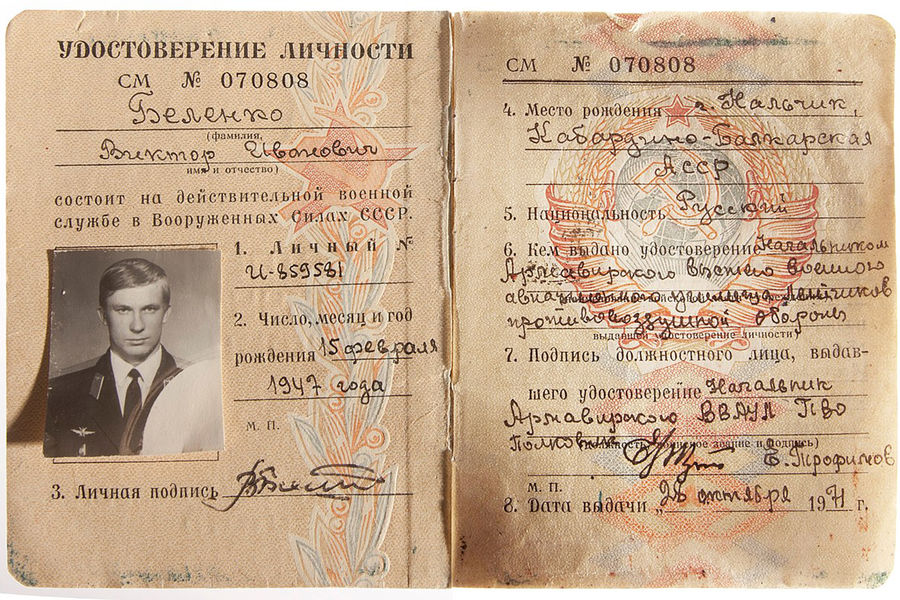 УДОСТОВЕРЕНИЕ ЛИЧНОСТИ
СМ № 070808
Беленко
(фамилия,
Виктор Иванович
имя и отчество)
состоит на действительной военной
службе в Вооруженных Силах СССР.
1. Личный №
И-859581
2. Число, месяц и год
рождения 15 февраля
1947 года
М. П.
3. Личная подпись
СМ № 070808
4. Место рождения г. Нальчик,
Кабардино-Балкарская
АССР
5. Национальность Русский
6. Кем выдано удостоверение Начальником
Армавирского высшего военного
авиационного училища лётчиков
противовоздушной обороны
выдавшей удостоверение личности)
7. Подпись должностного лица, выдав-
шего удостоверение Начальник
Армавирского ВВАУЛ ПВО
Полковник (должность, воинское звание и подпись)
Б. Трофимов
М. П.
8. Дата выдачи „28 октября 1971 г.